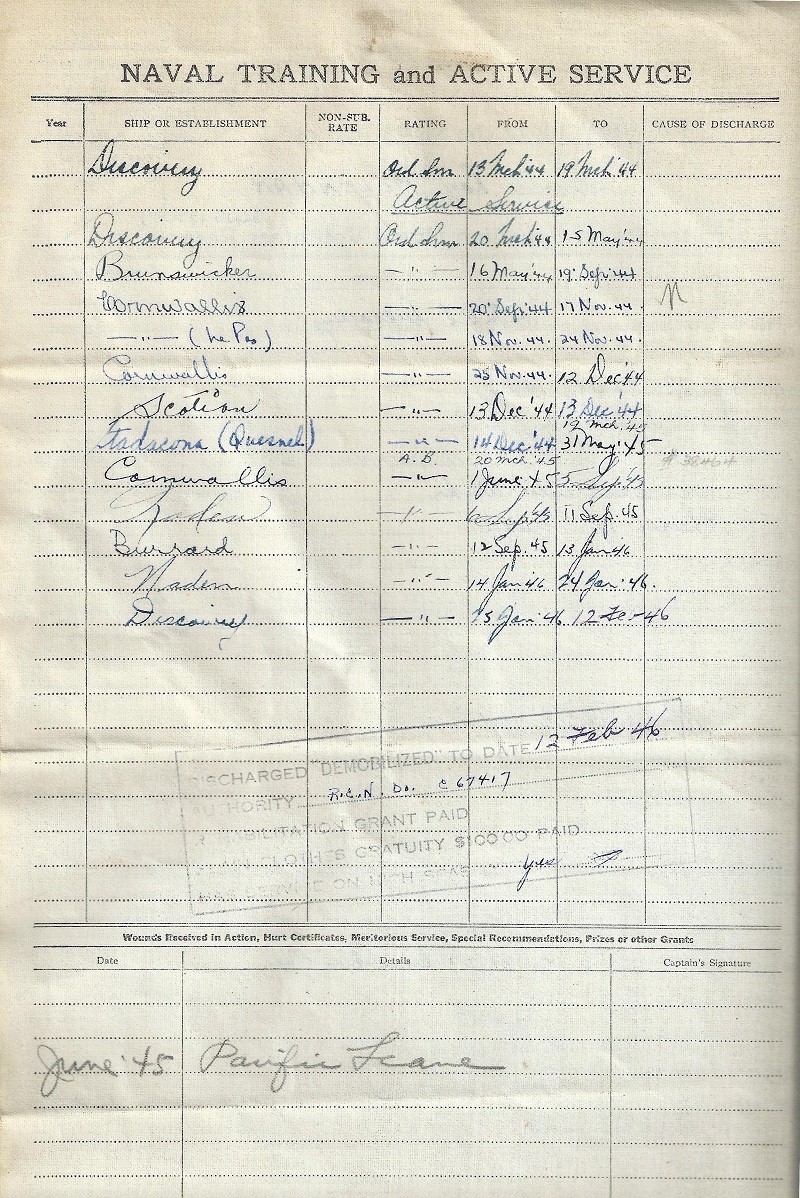 NAVAL TRAINING and ACTIVE SERVICE
Year SHIP OR ESTABLISHMENT NON-SUB. RATE RATING FROM TO CAUSE OF DISCHARGE
Discovery Ord Smn 13 Mch '44 19 Mch '44
Active Service
Discovery Ord Smn 20 Mch '44 15 May '44
Brunswicker —"— 16 May '44 19 Sep '44
Cornwallis —"— 20 Sep '44 17 Nov. 44. N
—"— (Le Pas) —"— 18 Nov. 44. 24 Nov. 44.
Cornwallis —"— 25 Nov. 44. 12 Dec '44
Scotian —"— 13 Dec '44 13 Dec '44
19 Mch. 45
Stadacona (Quesnel) —"— 14 Dec '44 31 May '45
A.B. 20 Mch. '45
Cornwallis —"— 1 June 45 5 Sep '45
Naden —"— 6 Sep '45 11 Sep. 45
Burrard —"— 12 Sep. 45 13 Jan 46
Naden —"— 14 Jan 46 24 Jan. 46.
Discovery —"— 25 Jan. 46 12 Feb 46
DISCHARGED "DEMOBILIZED" TO DATE 12 Feb 46
AUTHORITY R.C.N. Do. C 67417
REHABILITATION GRANT PAID
PLAIN CLOTHES GRATUITY $100.00 PAID
HAS SERVICE ON HIGH SEAS yes
Wounds Received in Action, Hurt Certificates, Meritorious Service, Special Recommendations, Prizes or other Grants
Date Details Captain's Signature
June '45 Pacific Leave